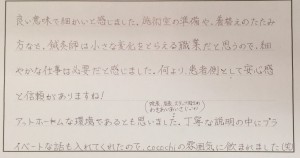 良い意味で細かいと感じました。施術室の準備や、着替えのたたみ
方など。鍼灸師は小さな変化をとらえる職業だと思うので、細
やかな仕事は必要だと感じました。何より、患者側として安心感
と信頼がありますね!
アットホームな環境であるとも思いました。丁寧な説明の中にプラ
イベートな話も入れてくれたので、cocochiの雰囲気に飲まれました(笑)